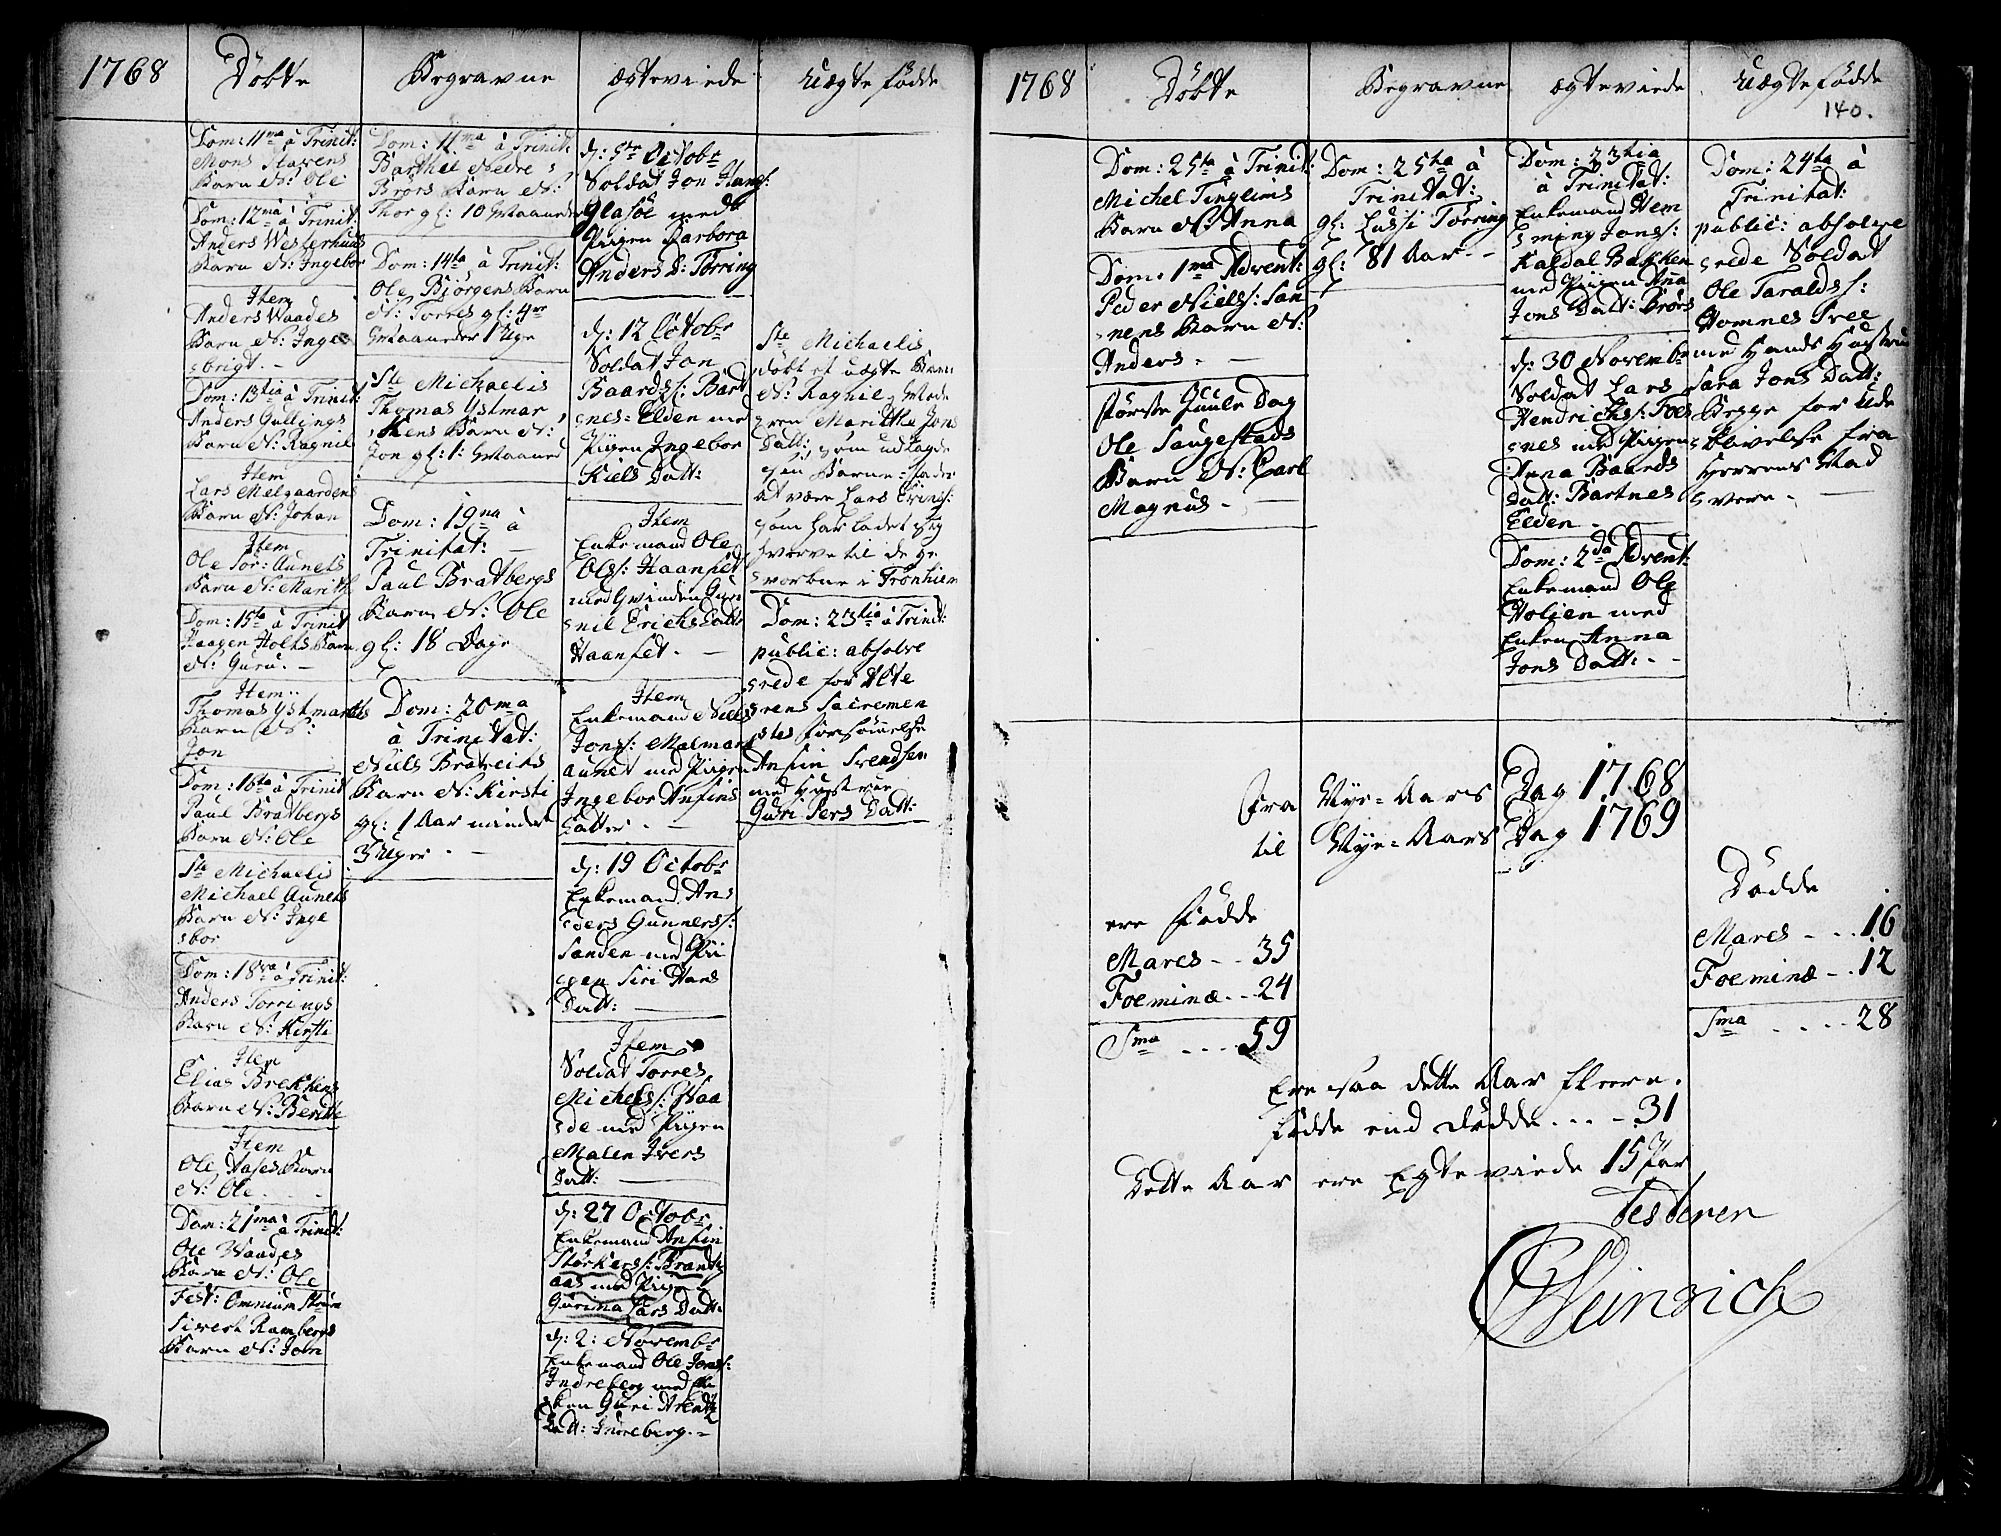 1768
Döbte
Begravne
ægteviede
Uægte fødde
Dom: 11ma à Trinit:
Mons Stavens
Barn N: Ole
Dom: 12ma à Trinit:
Anders Westerhuus
Barn N: Ingebor
Item
Anders Waades
Barn N: Inge
brigt. -
Dom: 13tia à Trinit:
Anders Gullings
Barn N: Ragnil
Item
Lars Melgaardens
Barn N: Johan
Item
Ole Sör: Aunets
Barn N: Marith
Dom: 15ta à Trinit
Haagen Holtes Barn
N: Guru. -
Item
Thomas Ystmarkens
Barn N:
Jon
Dom: 16ta à Trinit
Paul Bratbergs
Barn N: Ole
Ste Michaelis
Michael Aunets
Barn N: Inge
bor
Dom: 18va à Trinit:
Anders Torrings
Barn N: Kirsti
Item
Elias Brekkens
Barn N: Beritte
Item
Ole Hases Barn
N: Ole
Dom: 21ma à Trinit:
Ole Waades
Barn N: Ole
Fest: Omnium
Sivert Rambergs
Barn N: Jon
Dom: 11ma à Trinit:
Barthel Nedre
Brörs Barn N:
Thor gl: 10 Maaneder
Dom: 14ta à Trinit:
Ole Bjørgens Barn
N: Torres gl: 4re
Maaneder 1 Uge
Ste Michaelis
Thomas Ystmar
kens Barn N:
Jon gl: 1: Maaned
Dom: 19na à
Trinitat:
Paul Bratbergs
Barn N: Ole
gl: 18 Dage
Dom: 20ma
à Trinitat:
Niels Bratreits
Barn N: Kirsti
gl: 1 Aar mindre
3 Uger -
d: 5te Octobr
Soldat Jon Hans:
Glasöe med
Pigen Barbora
Anders D: Törring
d: 12 Octobr
Soldat Jon
Baards: Bart
nes-Elden med
Pigen Ingebor
Kiels Datt:
Item
Enkemand Ole
Ols: Haanset
med Qvinden Gun
nil Erichs Datt
Haanset. -
Item
Enkemand Niels
Jons: Malmark
aunet med Pigen
Ingebor Ansins
Datter -
d: 19 Octobr
Enkemand An
ders Gunners:
Sanden med Pi
gen Siri Hans
Datt:
Item
Soldat Torres
Michels: Waa
de med Pigen
Malen Ivers
Datt:
d: 27 Octobr
Enkemand Ansin
Störkers: Brandt
aas med Pigen
Gurina Lars Datt:
d: 2: Novembr
Enkemand Ole Jons:
Indreberg med En
ken Guri Arentz
Datt: Indreberg. -
Ste Michaelis
döbt et uægte Barn
N: Ragnil, Mode
ren Maritha Jons
Datt: som udlagde
sin Barne-Fader
at være Lars Erics:
som har ladet sig
hverve til de ge
vorbne i Tronhiem
Dom: 23tia à Trinit:
public: absolve
rede for Alte
rens Sacremen
tes Forsömmelse
Ansin Svendsen
med Hustrue
Guri Pers Datt:
1768
Döbte
Begravne
ægteviede
Uægte fødde
140.
Dom: 25ta à Trinit:
Michel Tinglums
Barn N: Anna
Dom: 1ma Advent:
Peder Niels: San
nens Barn N:
Anders -
förste Juule Dag
Ole Saugestads
Barn N: Carl
Magnus -
Dom: 25ta à
Trinitat:
gl: Lussi Törring
gl: 81 Aar -
Dom: 23tia
à Trinitat:
Enkemand Hem
ming Jons:
Kaldal Bakken
med Pigen Ana
Jons Datt: Brörs
d: 30 Novembr
Soldat Lars
Hendrichs: Foes
nes med Pigen
Anna Baards
Datt: Bartnes
Elden -
Dom: 2da Advent:
Enkemand Ole
Holien med
Enken Anna
Jons Datt: -
Dom: 24ta à
Trinitat:
public: absolve
rede Soldat
Ole Taralds:
Homnes Tree
med Hands Hustrue
Sara Jons Datt:
Begge for Ude
blivelse fra
Herrens Nad
vere. -
fra Nye-Aars Dag 1768
til Nye-Aars Dag 1769
ere fødde
Mares - - 35
Foeminæ - - 24
Sma - - - - 59
Dödde
Mares - - - 16
Foeminæ - - 12
Sma - - - - 28
Ere saa dette Aar fleere
fødde end dödde - - - - 31
Dette Aar ere Egteviede 15 Par
Testerer
Weinrich